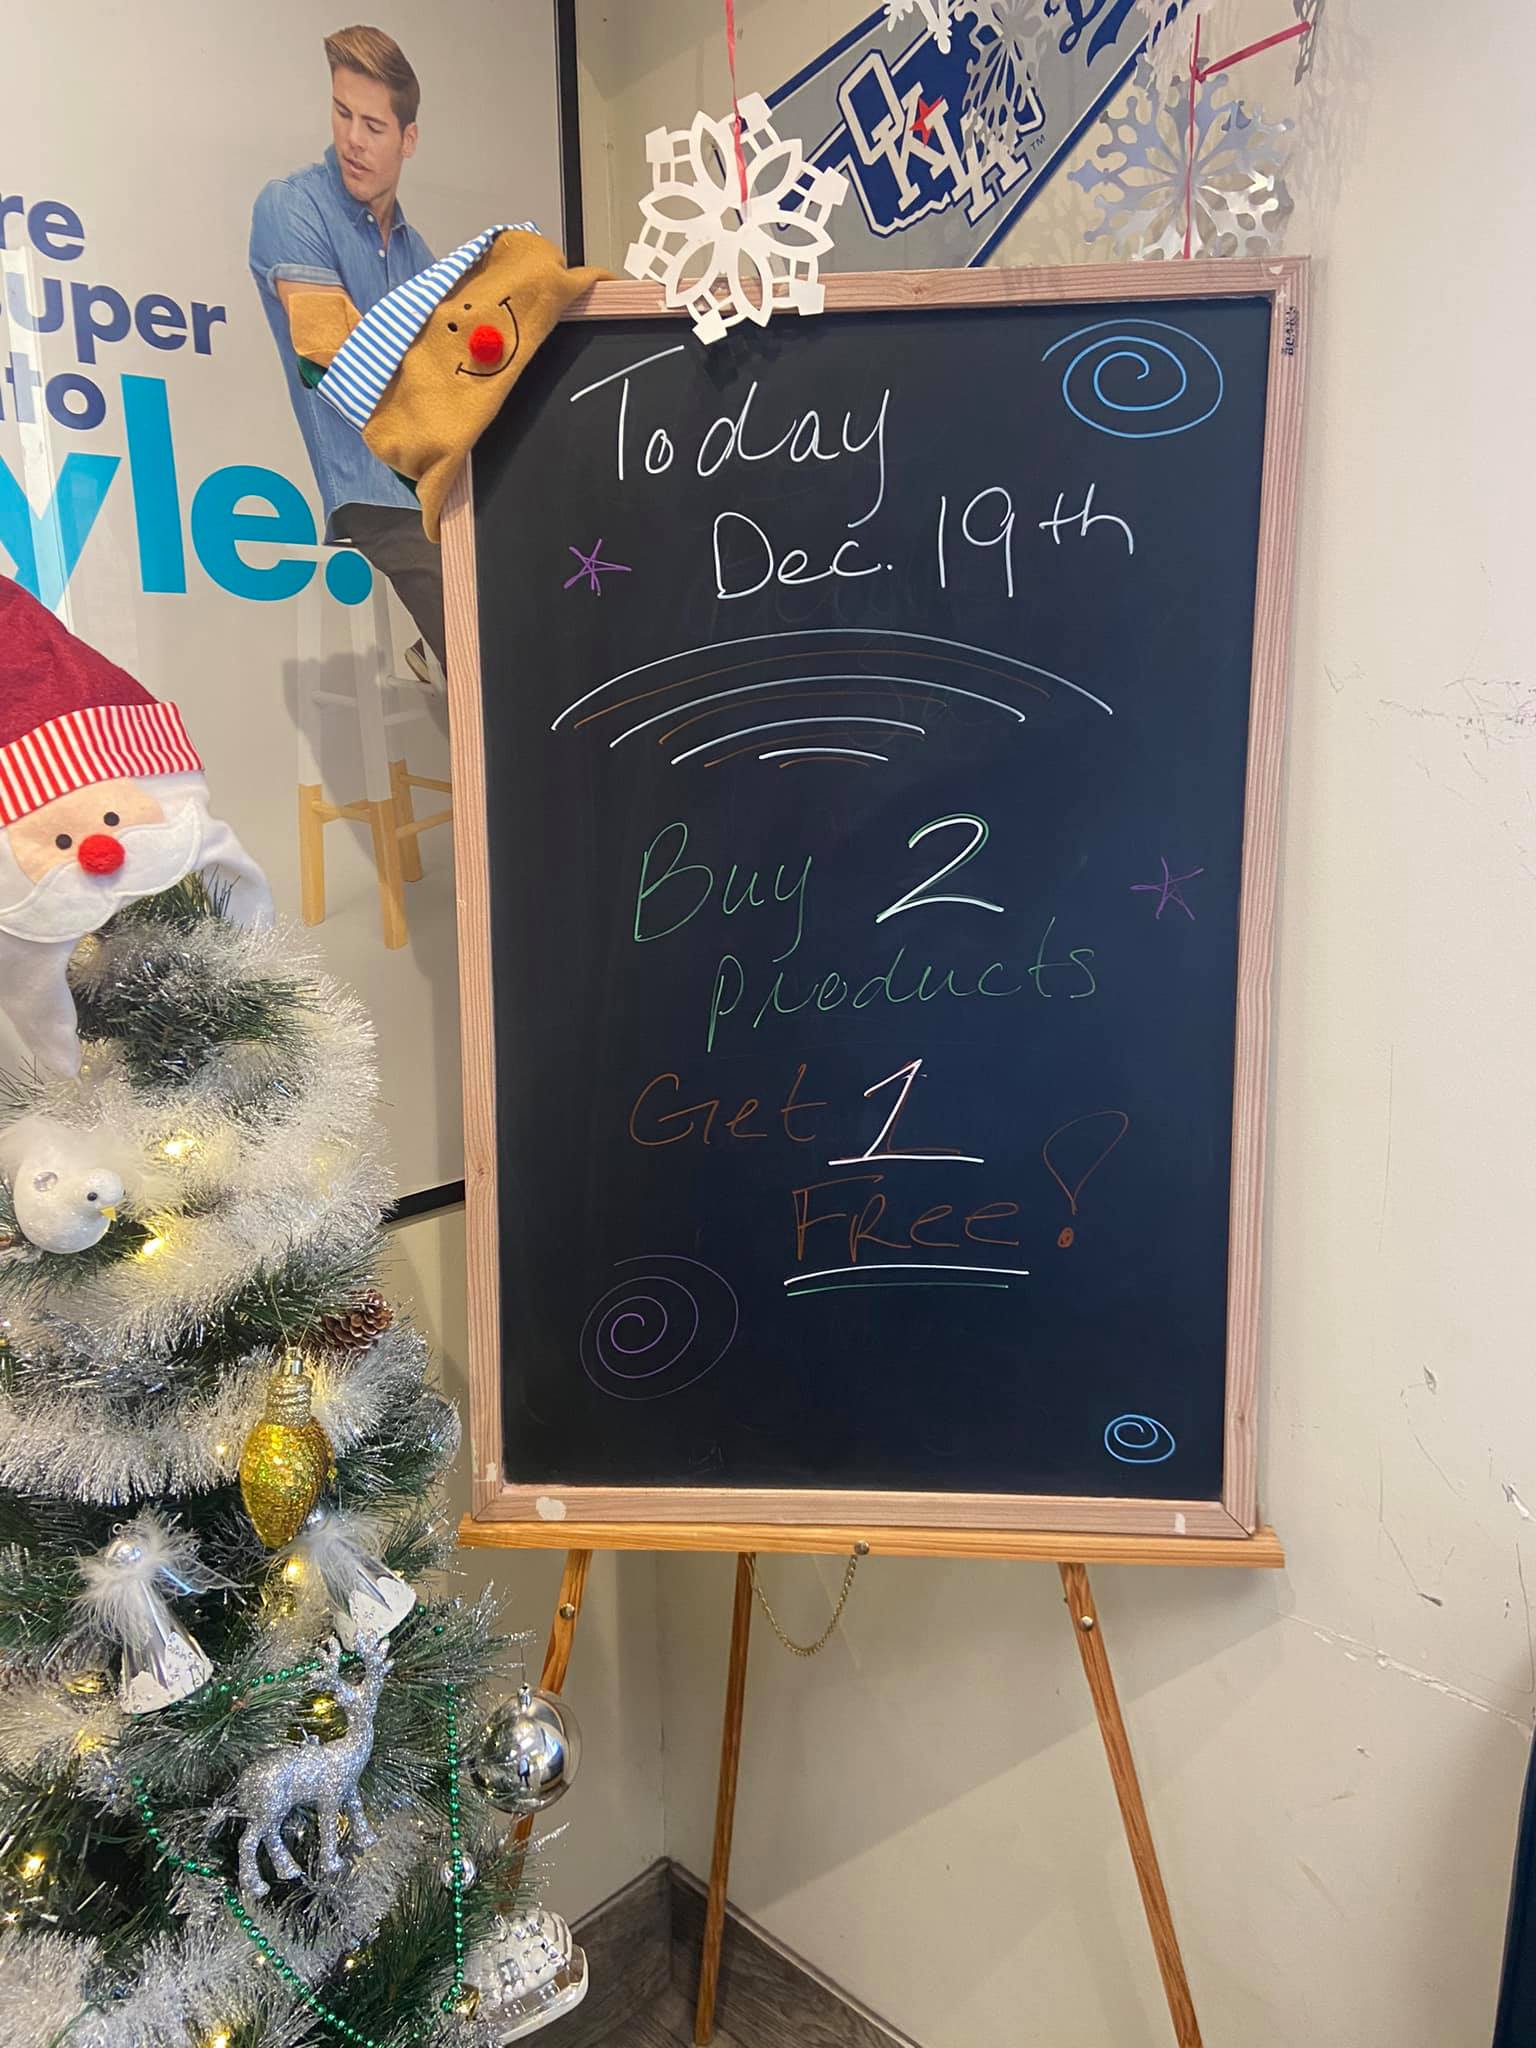 re
super
nto
yle.
OKLA
TM
Today
Dec. 19th
Buy 2
Products
Get 1
FRee!